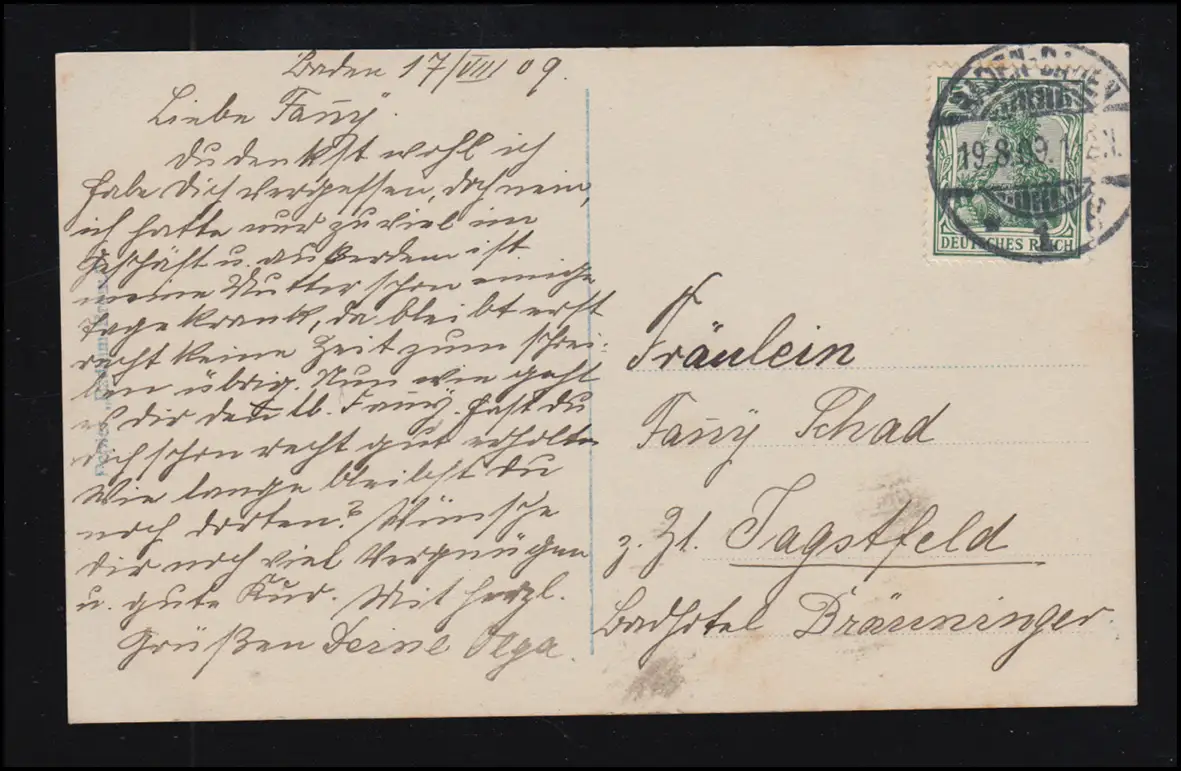 Baden 17/VIII 09.
Liebe Fany.
Du denkst wohl ich
habe Dich vergessen, doch nein,
ich hatte nur zu viel im
Geschäft u. außerdem ist
meine Mutter schon einige
Tage krank, da bleibt erst
recht keine Zeit zum schrei-
ben übrig. Nun wie geht
es dir denn lb. Fany. Hast du
dich schon recht gut erholt
Wie lange bleibst Du
noch dorten? Wünsche
dir noch viel Vergnügen
u. gute Kur. Mit herzl.
Grüßen Deine Olga.
BADEN-BADEN
19.8.09.1
DEUTSCHES REICH
Fräulein
Fany Schad
z. Zt. Jagstfeld
Badhotel Bräuninger.